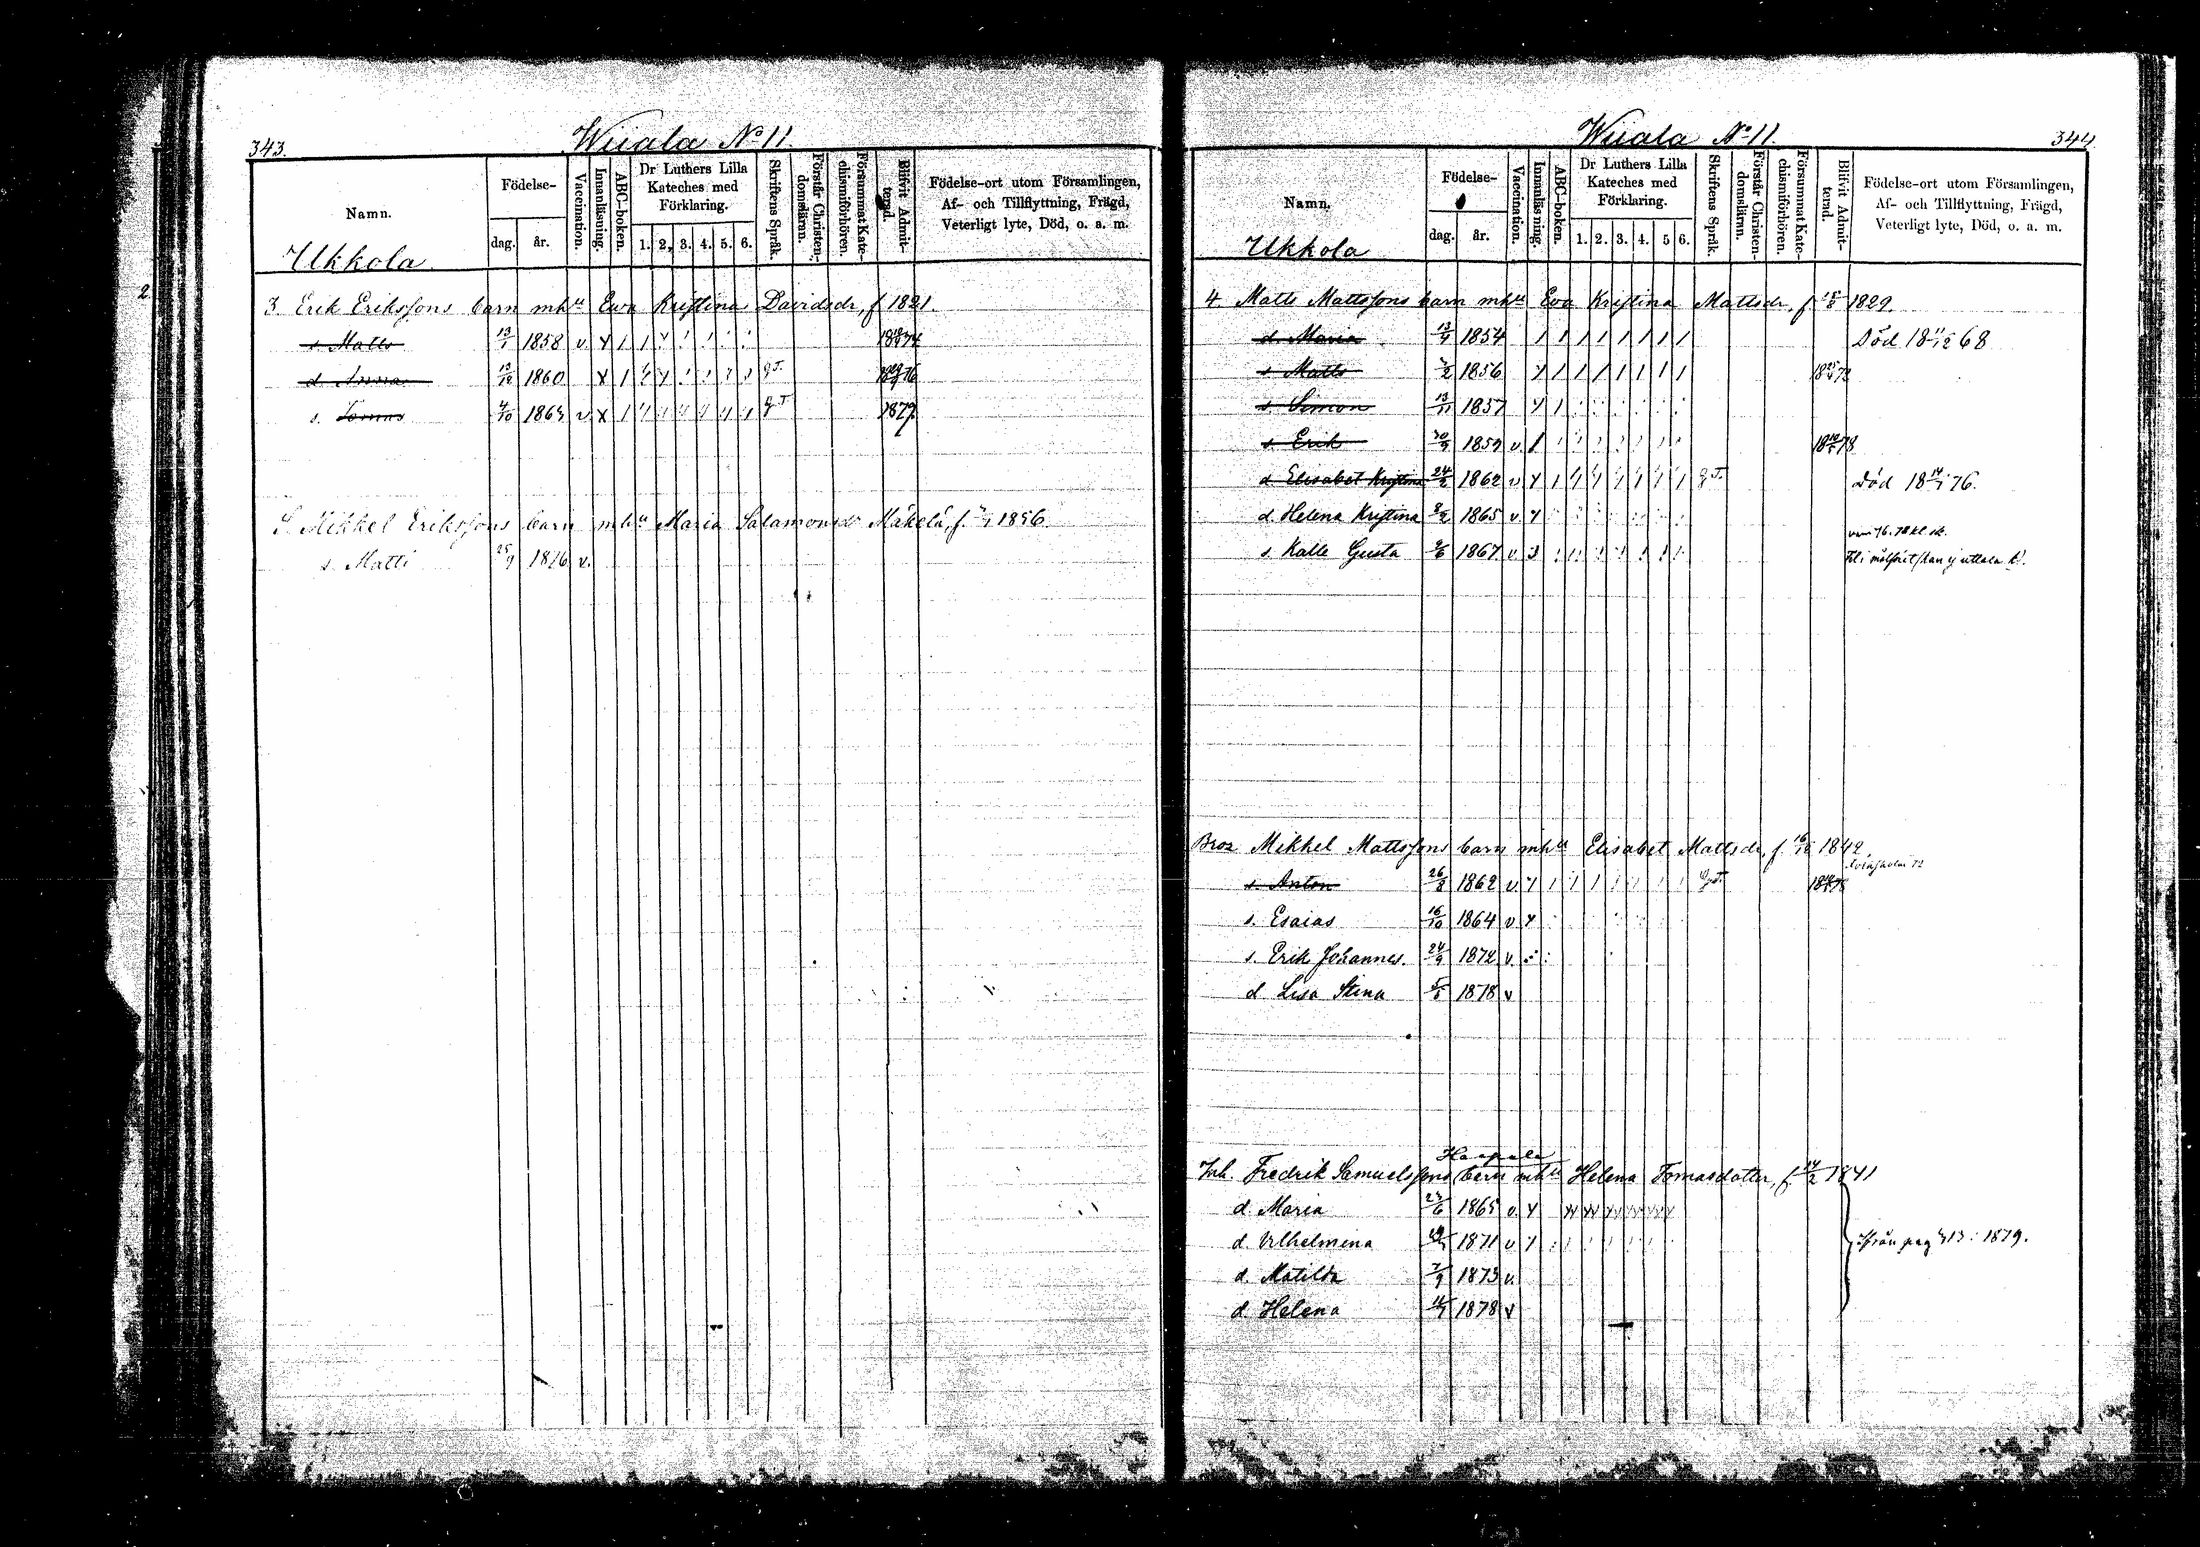 343.
Wiiala No 11.
Namn.
Födelse-
dag. år.
Vaccination.
Innanläsning.
ABC-boken.
Dr Luthers Lilla Kateches med Förklaring.
1. 2. 3. 4. 5. 6.
Skriftens Språk.
Förstår Christendomslärnn.
Försummat Katechismiförhören.
Blifvit Admitterad.
Födelse-ort utom Församlingen, Af- och Tillflyttning, Frägd, Veterligt lyte, Död, o. a. m.
Ukkola
2
3 Erik Erikssons barn mhu Ewa Kristina Davidsdr, f 1821.
s. Matts 13/1 1858 v.
d. Anna 13/12 1860
s. Tomas 4/10 1863 v. 1879
S. Mikkel Erikssons barn mhu Maria Salamonsdr Mäkelä, f. 1856
s. Matti 25/9 1876 v.
344
Wiiala No 11.
Namn.
Födelse-
dag. år.
Vaccination.
Innanläsning.
ABC-boken.
Dr Luthers Lilla Kateches med Förklaring.
1. 2. 3. 4. 5 6.
Skriftens Språk.
Förstår Christendomslärnn.
Försummat Katechismiförhören.
Blifvit Admitterad.
Födelse-ort utom Församlingen, Af- och Tillflyttning, Frägd, Veterligt lyte, Död, o. a. m.
Ukkola
4 Matts Mattssons barn mhu Eva Kristina Mattsdr, f. 1829.
d. Maria 1854 Död 18 11/12 68
s. Matts 1856
s. Simon 13/11 1857
s. Erik 30/9 1859 v.
d. Elisabet Kristina 24/2 1862 v. Död 18 14/1 76.
d. Helena Kristina 8/2 1865 v.
s. Kalle Gusta 9/6 1867 v
Broz Mikkel Mattssons barn mhu Elisabet Mattsdr, f. 16/10 1842
s. Anton 26/8 1862 v.
s. Esaias 16/10 1864 v.
s. Erik Johannes. 24/9 1872 v.
d Lisa Stina 1878 v
Haapala
Inh. Fredrik Samuelssons barn mhu Helena Tomasdotter, f 14/2 1841
d. Maria 23/6 1865 v.
d. Vilhelmina 1871 v
d. Matilda 7/9 1873 v.
d. Helena 1878 v